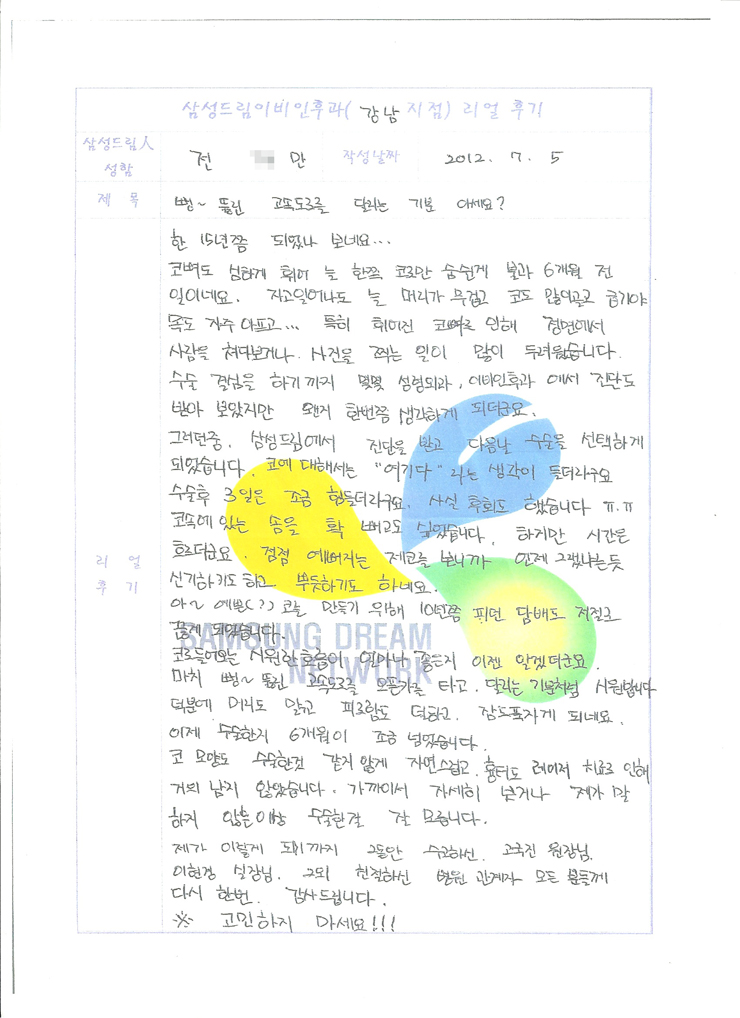 삼성드림이비인후과( 강남 지점) 리얼 후기
삼성드림人 성함
전 만
작성날짜
2012. 7. 5
제 목
뻥~ 뚫린 고속도로를 달리는 기분 아세요?
리 얼 후 기
한 15년쯤 되었나 보네요...
코뼈도 심하게 휘어 늘 한쪽 코로만 숨쉰게 불과 6개월 전
일이네요. 자고일어나도 늘 머리가 무겁고 코도 많이골고 급기야
목도 자주 아프고... 특히 휘어진 코뼈로 인해 정면에서
사람을 쳐다보거나. 사진을 찍는 일이 많이 두려웠습니다.
수술 결심을 하기까지 몇몇 성형외과, 이비인후과 에서 진단도
받아 보았지만 왠지 한번쯤 생각하게 되더군요.
그러던중. 삼성드림에서 진단을 받고 다음날 수술을 선택하게
되었습니다. 코에 대해서는 "여기다" 라는 생각이 들더라구요
수술후 3일은 조금 힘들더라구요. 사실 후회도 했습니다 ㅠ.ㅠ
코속에 있는 솜을 확 빼고도 싶었습니다. 하지만 시간은
흐르더군요. 점점 예뻐지는 제코를 보니까 언제 그랬냐는듯
신기하기도 하고 뿌듯하기도 하네요.
아~ 예쁜(??) 코를 만들기 위해 10년쯤 피던 담배도 저절로
끊게 되었습니다.
코로들어오는 시원한 호흡이 얼마나 좋은지 이젠 알겠더군요.
마치 뻥~ 뚫린 고속도로를 오픈카를 타고. 달리는 기분처럼 시원합니다
덕분에 머리도 맑고 피로함도 덜하고. 잠도푹자게 되네요.
이제 수술한지 6개월이 조금 넘었습니다.
코 모양도 수술한것 같지 않게 자연스럽고. 흉터도 레이저 치료로 인해
거의 남지 않았습니다. 가까이서 자세히 보거나 제가 말
하지 않은이상 수술한걸 잘 모릅니다.
제가 이렇게 되기까지 그동안 수고하신. 고국진 원장님.
이현경 실장님. 그외 친절하신 병원 관계자 모든 분들께
다시 한번. 감사드립니다.
※ 고민하지 마세요!!!
SAMSUNG DREAM
NETWORK